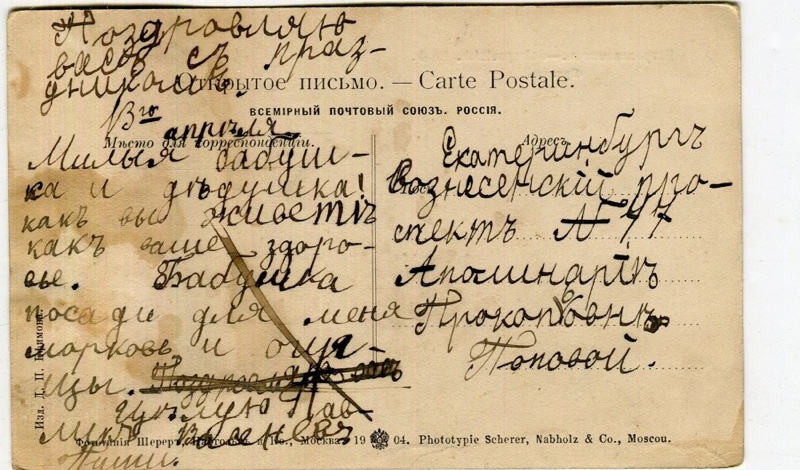 Поздровляю
васъ съ праз-
дникомъ.
Открытое письмо. — Carte Postale.
ВСЕМІРНЫЙ ПОЧТОВЫЙ СОЮЗЪ. РОССІЯ.
13го
апрѣля
Мѣсто для корреспонденціи.
Милыя бабуш-
ка и дѣдушка!
какъ вы живетѣ
какъ ваше здоро-
вье. Бабушка
посади для меня
морковь и огур-
цы.
цѣлую
Паши.
Адресъ
Екатеринбургъ
Вознесенскій про-
спектъ №
Аполинаріѣ
Прокопьовнѣ
Поповой.
Изд. Д. П. Ефимова.
Фототипія Шереръ, Набгольцъ и Ко., Москва. 19 04. Phototypie Scherer, Nabholz & Co., Moscou.